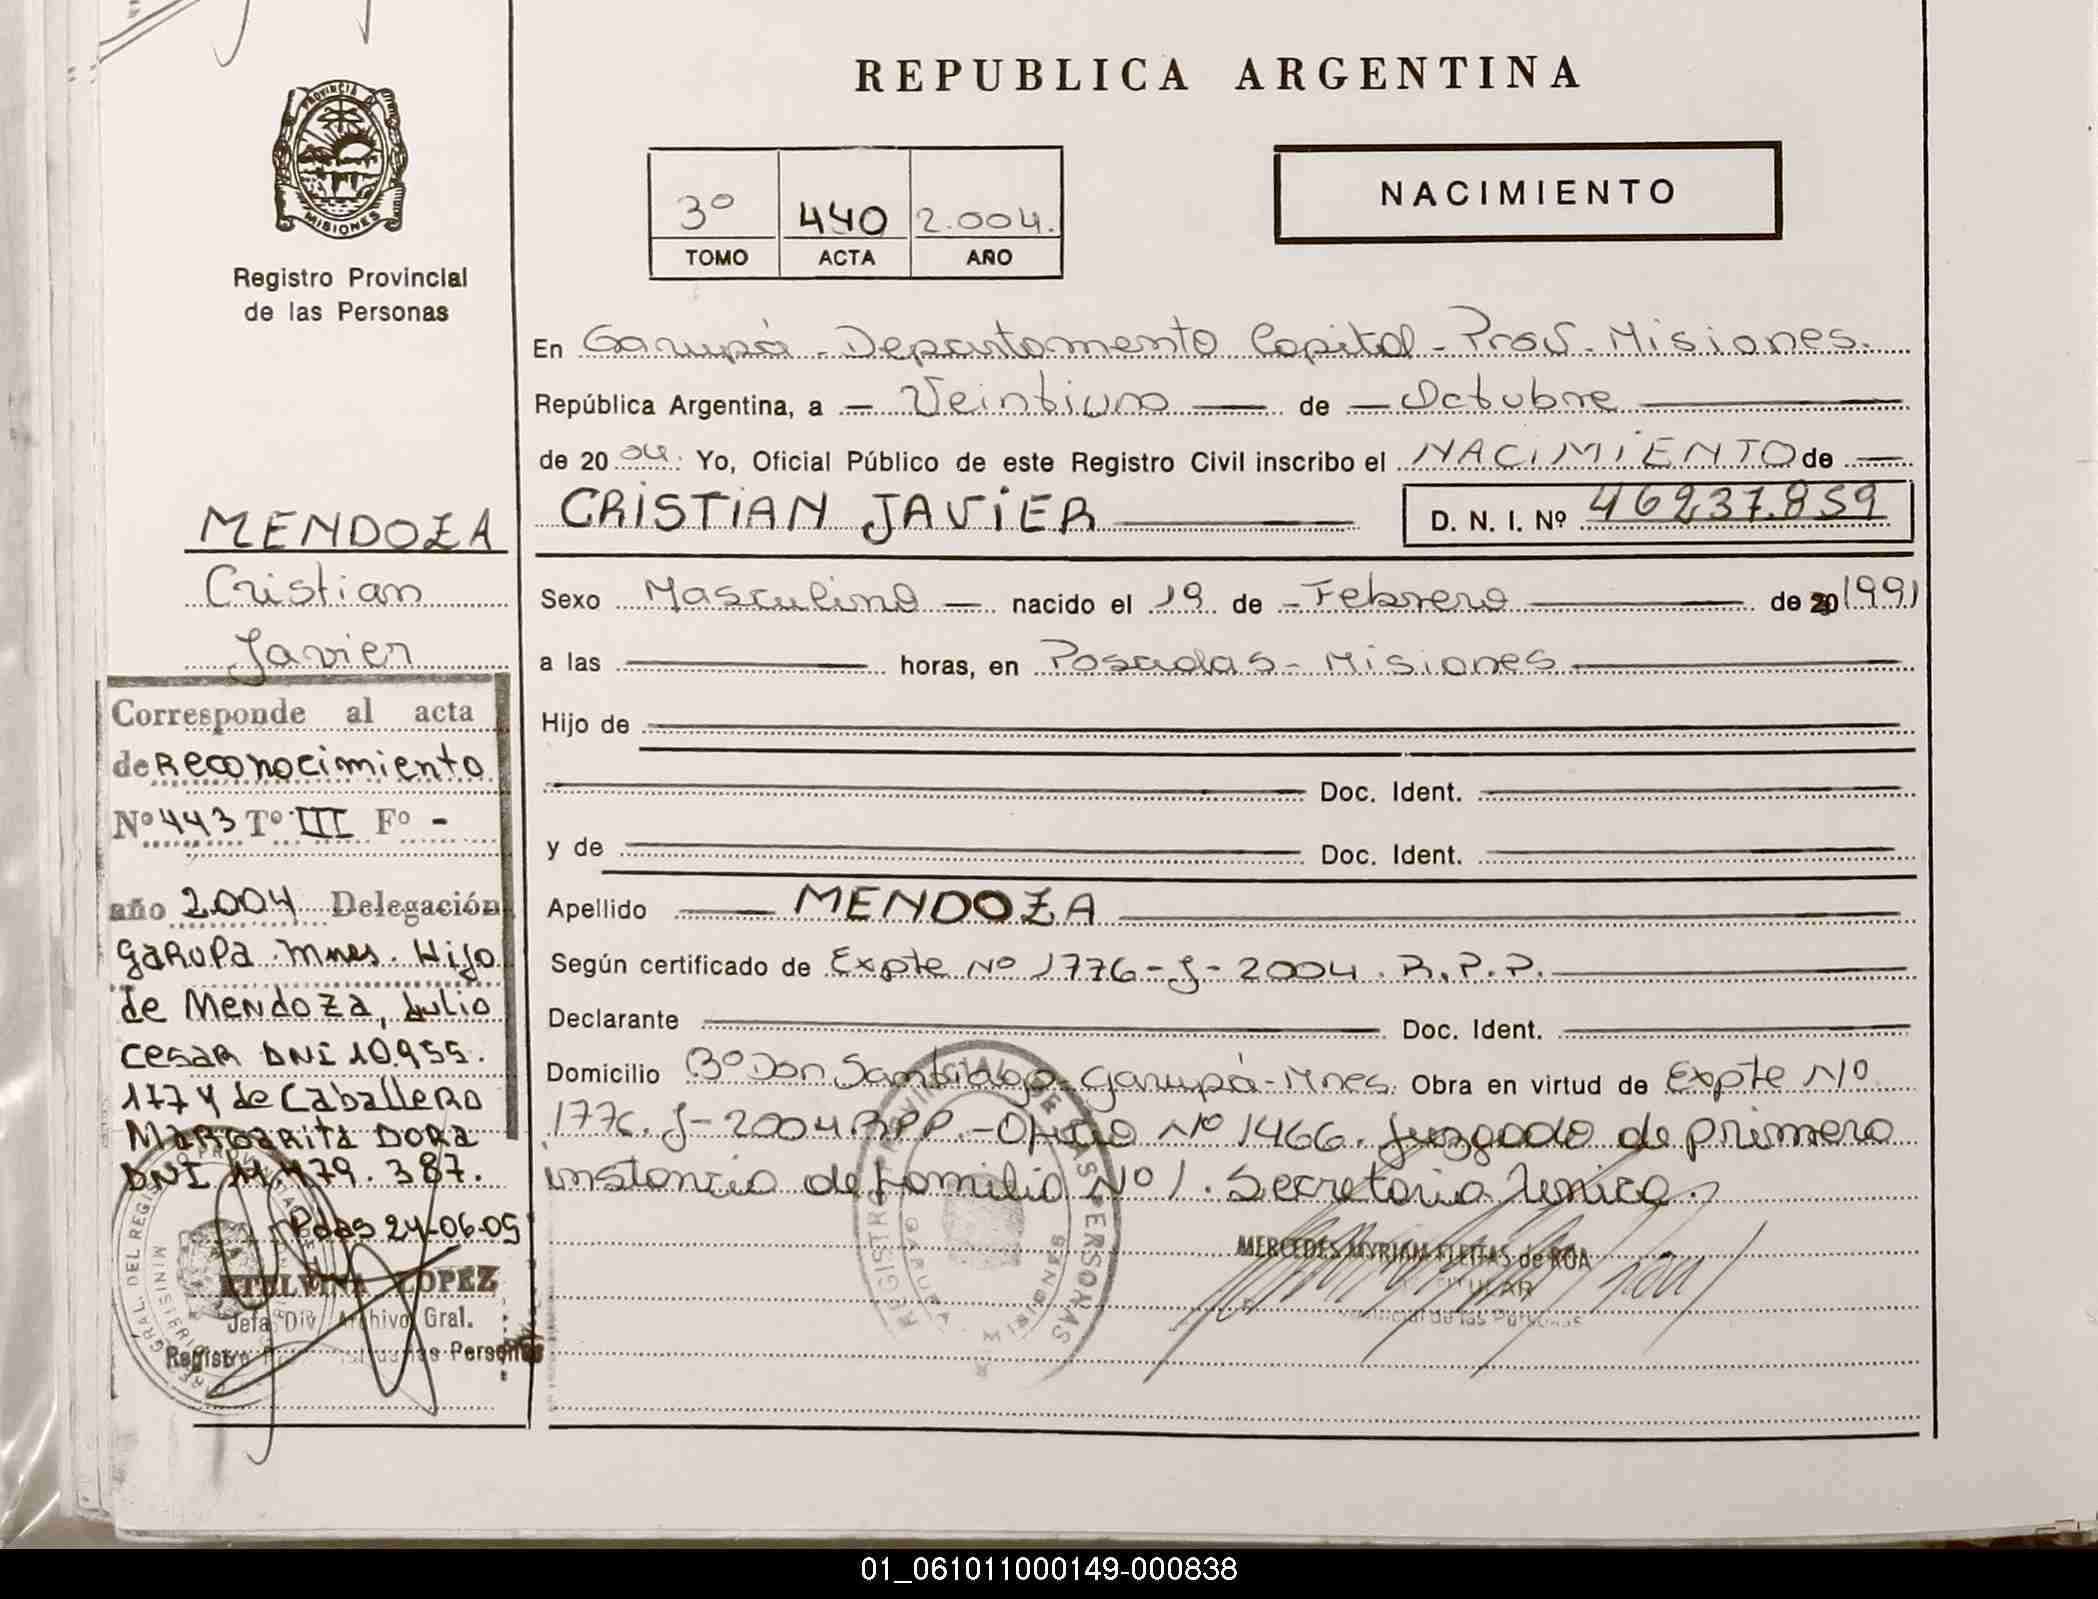 REPUBLICA ARGENTINA
PROVINCIA D
MISIONES
Registro Provincial
de las Personas
3º 440 2.004.
TOMO ACTA AÑO
NACIMIENTO
En Garupá - Departamento Capital - Prov. Misiones.
República Argentina, a — Veintiuno — de — Octubre —
de 20 04. Yo, Oficial Público de este Registro Civil inscribo el NACIMIENTO de —
CRISTIAN JAVIER — D. N. I. Nº 46237.859
Sexo Masculino — nacido el 19 de - Febrero — de 20 1991
a las — horas, en Posadas - Misiones —
Hijo de —
— Doc. Ident. —
y de — Doc. Ident. —
Apellido — MENDOZA —
Según certificado de Expte Nº 1776-J-2004. R.P.P. —
Declarante — Doc. Ident. —
Domicilio Bº Don Santiago - Garupá - Mnes. Obra en virtud de Expte Nº
1776. J-2004 RPP. - Oficio Nº 1466. Juzgado de primera
instancia de familia Nº 1. Secretaria
MERCEDES MYRIAM FLEITAS de ROA
TITULAR
Provincial de las Personas
REGISTRO PROVINCIAL DE LAS PERSONAS
GARUPA - MISIONES
MENDOZA
Cristian
Javier
Corresponde al acta
de Reconocimiento
Nº 443 Tº III Fº -
año 2004 Delegación
GARUPA. Mnes. Hijo
de Mendoza, Julio
Cesar DNI 10.955.
177 y de Caballero
MARGARITA DORA
DNI 11.479.387.
Pdas 24-06-05
ETELVINA LOPEZ
Jefa Div. Archivo Gral.
Registro Personas
GRAL. DEL REGISTRO
01_061011000149-000838